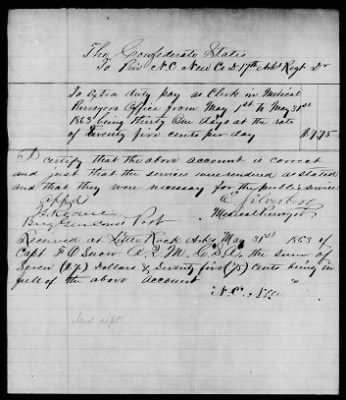 The Confederate States
To Priv N.C. New Co D 17th Ark Regt Dr
To Extra duty pay as Clerk in Medical
Purveyors Office from May 1st to May 31st
1863 being thirty One days at the rate
of Twenty five cents per day $7.75
I certify that the above account is correct
and just that the services were rendered as stated
and that they were necessary for the public service
Appd
Medical Purveyor
Brig Gen Post
Received at Little Rock Arks May 31st 1863 of
Capt F. C. Snow A.Q.M. C.S.A. the sum of
Seven (07) Dollars & Seventy five (75) Cents being in
full of the above account
N.C. New
Med Dept